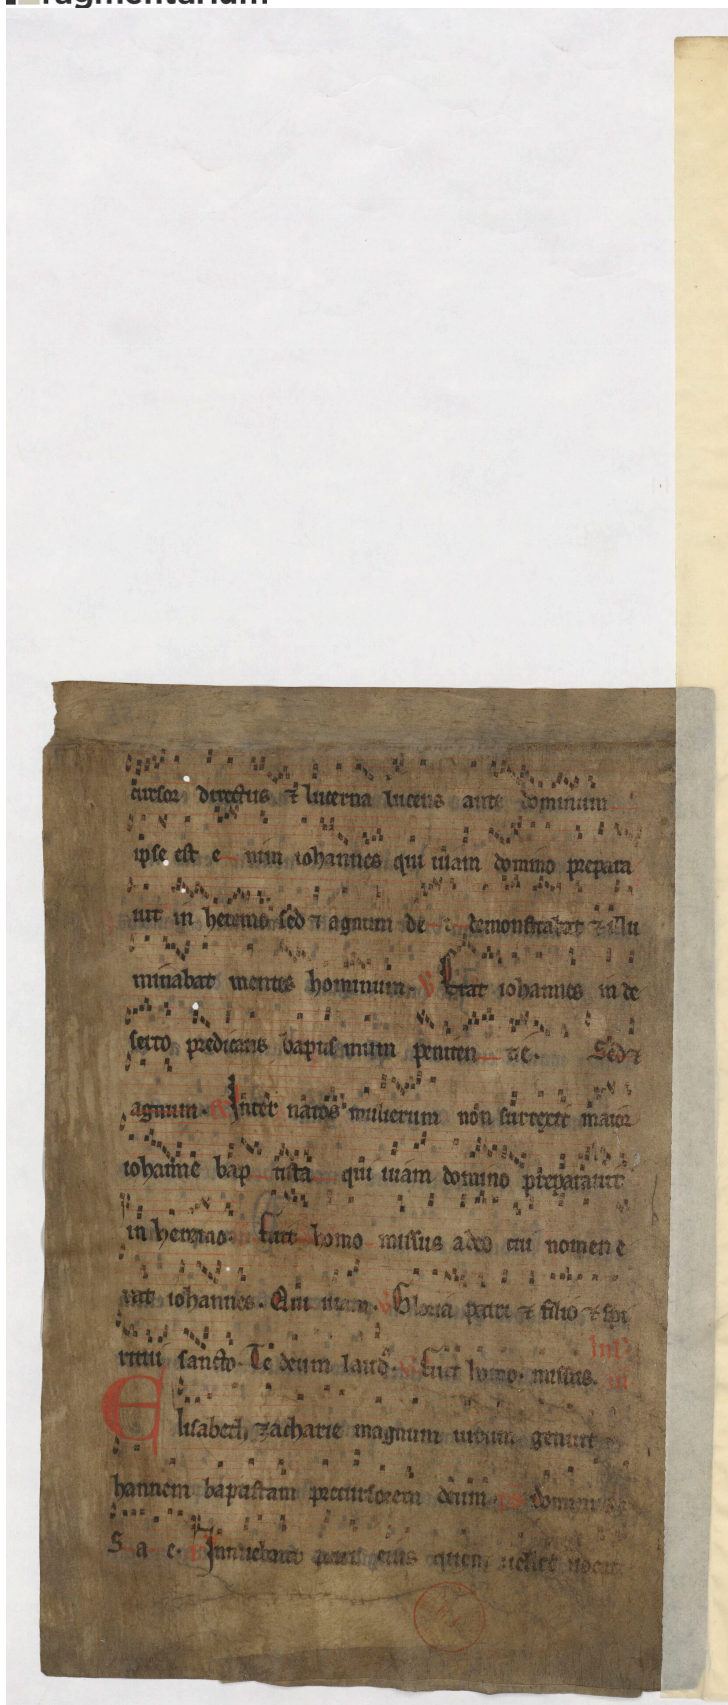 cursor directus ⁊ lucerna lucens ante dominum
ipse est e nim iohannes qui uiam domino prepara
uit in heremo sed ⁊ agnum de i demonstrabat ⁊ illu
minabat mentes hominum. V Erat iohannes in de
serto predicans baptismum peniten tie. Sed ⁊
agnum. Inter natos mulierum non surrexit maior
iohanne bap tista qui uiam domino preparauit
in heremo. Fuit homo missus a deo cui nomen e
rat iohannes. Qui uiam. V Gloria patri ⁊ filio ⁊ spi
ritui sancto. Te deum laud. V Fuit homo. missus. in
Elisabeth zacharie magnum uirum genuit
hannem baptistam precursorem domini
S a e. Innuebant patri eius quem uellet uocari